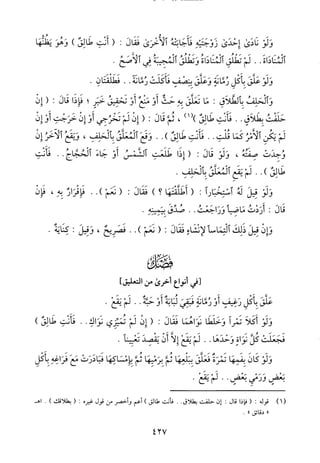 وَلَوْ نَادَىٰ إِحْدَىٰ زَوْجَتَيْهِ فَأَجَابَتْهُ الْأُخْرَىٰ فَقَالَ : ( أَنْتِ طَالِقٌ ) وَهُوَ يَظُنُّهَا
الْمُنَادَاةَ.. لَمْ تَطْلُقِ الْمُنَادَاةُ وَتَطْلُقُ الْمُجِيبَةُ فِي الْأَصَحِّ .
وَلَوْ عَلَّقَ بِأَكْلِ رُمَّانَةٍ وَعَلَّقَ بِنِصْفٍ فَأَكَلَتْ رُمَّانَةً.. فَطَلْقَتَانِ .
وَالْحَلِفُ بِالطَّلَاقِ : مَا تَعَلَّقَ بِهِ حَثٌّ أَوْ مَنْعٌ أَوْ تَحْقِيقُ خَبَرٍ ؛ فَإِذَا قَالَ : ( إِنْ
حَلَفْتُ بِطَلَاقٍ.. فَأَنْتِ طَالِقٌ )(١) ، ثُمَّ قَالَ : ( إِنْ لَمْ تَخْرُجِي أَوْ إِنْ خَرَجْتِ أَوْ إِنْ
لَمْ يَكُنِ الْأَمْرُ كَمَا قُلْتِ.. فَأَنْتِ طَالِقٌ ).. وَقَعَ الْمُعَلَّقُ بِالْحَلِفِ ، وَيَقَعُ الْآخَرُ إِنْ
وُجِدَتْ صِفَتُهُ ، وَلَوْ قَالَ : ( إِذَا طَلَعَتِ الشَّمْسُ أَوْ جَاءَ الْحُجَّاجُ.. فَأَنْتِ
طَالِقٌ ).. لَمْ يَقَعِ الْمُعَلَّقُ بِالْحَلِفِ .
وَلَوْ قِيلَ لَهُ اسْتِخْبَاراً : ( أَطَلَّقْتَهَا ؟ ) فَقَالَ : ( نَعَمْ ).. فَإِقْرَارٌ بِهِ ، فَإِنْ
قَالَ : أَرَدْتُ مَاضِياً وَرَاجَعْتُ.. صُدِّقَ بِيَمِينِهِ .
وَإِنْ قِيلَ ذَلِكَ الْتِمَاساً لِإِنْشَاءٍ فَقَالَ : ( نَعَمْ ).. فَصَرِيحٌ ، وَقِيلَ : كِنَايَةٌ .
فَصْلٌ
[في أنواع أخرىٰ من التعليق]
عَلَّقَ بِأَكْلِ رَغِيفٍ أَوْ رُمَّانَةٍ فَبَقِيَ لُبَابَةٌ أَوْ حَبَّةٌ.. لَمْ يَقَعْ .
وَلَوْ أَكَلَا تَمْراً وَخَلَطَا نَوَاهُمَا فَقَالَ : ( إِنْ لَمْ تُمَيِّزِي نَوَاكِ.. فَأَنْتِ طَالِقٌ )
فَجَعَلَتْ كُلَّ نَوَاةٍ وَحْدَهَا.. لَمْ يَقَعْ إِلَّا أَنْ يَقْصِدَ تَعْيِيناً .
وَلَوْ كَانَ بِفَمِهَا تَمْرَةٌ فَعَلَّقَ بِبَلْعِهَا ثُمَّ بِرَمْيِهَا ثُمَّ بِإِمْسَاكِهَا فَبَادَرَتْ مَعَ فَرَاغِهِ بِأَكْلِ
بَعْضٍ وَرَمْيِ بَعْضٍ.. لَمْ يَقَعْ .
(١) قوله : ( فإذا قال : إن حلفت بطلاق.. فأنت طالق ) أعم وأخصر من قول غيره : ( بطلاقك ) . اهـ
« دقائق »
٤٢٧